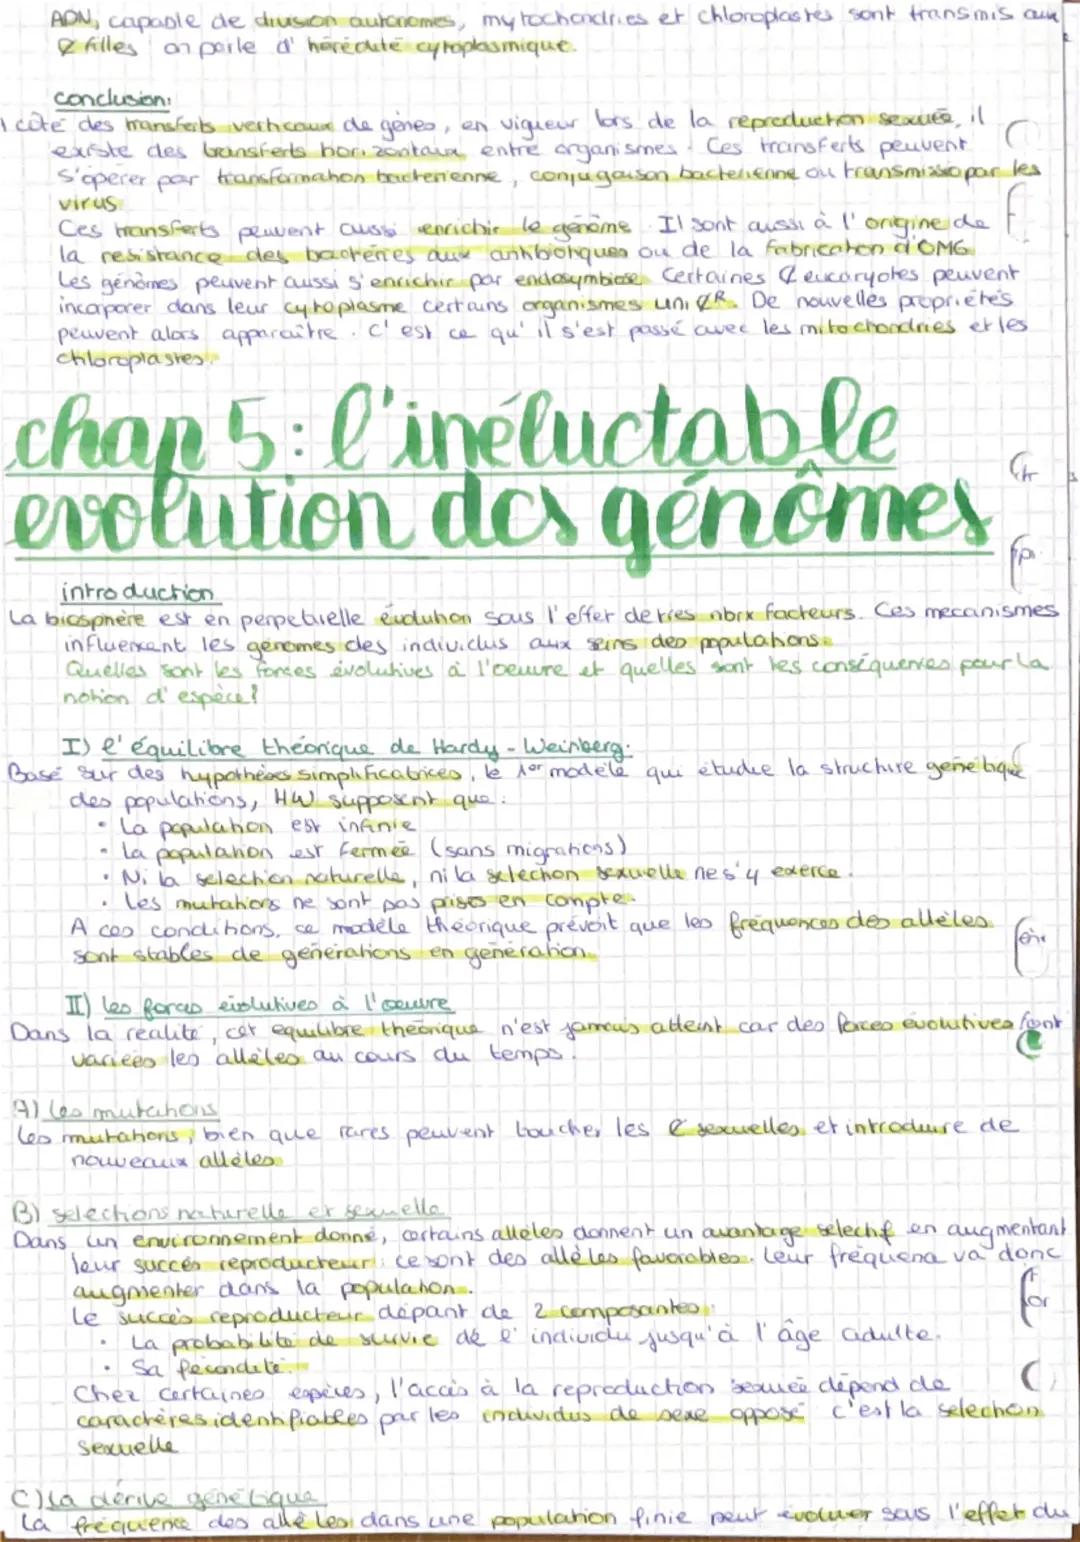 ADN, capable de division autonomes, mytochondries et chloroplastes sont transmis aux
¢ filles on parle d' hérédité cytoplasmique.
conclusion:
côté des transferts verticaux de gènes, en vigueur lors de la reproduction sexuée, il
existe des transferts horizontaux entre organismes. Ces transferts peuvent
s'opérer par transformation bactérienne, conjugaison bactérienne ou transmissio par les
virus
Ces transferts peuvent aussi enrichir le génôme. Il sont aussi à l'origine de
la resistance des bactéries aux antibiotiques ou de la fabrication d'OMG
Les génômes peuvent aussi s'enrichir par endosymbiose Certaines ¢ eucaryotes peuvent
incorporer dans leur cytoplasme certains organismes uni ¢R. De nouvelles propriétés
peuvent alors apparaître. C'est ce qu'il s'est passé avec les mitochondries et les
chloroplastes.
chap 5: l'inéluctable
evolution des génômes
introduction
La biosphère est en perpetuelle évolution sous l'effet de tres nbrx facteurs. Ces mecanismes
influencent les génomes des individus aux seins des populations.
Quelles sont les forces évolutives à l'oeuvre et quelles sont les conséquences pour la
notion d'espèce?
I) l'équilibre théorique de Hardy - Weinberg.
Basé sur des hypothèses simplificatrices, le 1er modèle qui étudie la structure genetique
des populations, HW supposent que:
• La population est infinie
• La population est fermée (sans migrations)
• Ni la selection naturelle, ni la selection sexuelle ne s'y exerce.
• Les mutations ne sont pas prises en compte.
A ces conditions, ce modèle théorique prévoit que les fréquences des allèles
sont stables de générations en génération.
II) les forces evolutives à l'oeuvre
Dans la réalité, cet equilibre théorique n'est jamais atteint car des forces évolutives font
variées les allèles au cours du temps.
A) les mutations
les mutations, bien que rares peuvent toucher les ¢ sexuelles et introduire de
nouveaux allèles
B) selections naturelle et sexuelle
Dans un environnement donné, certains alleles donnent un avantage selectif en augmentant
leur succès reproducteur: ce sont des allèles favorables. Leur fréquence va donc
augmenter dans la population.
Le succès reproducteur dépant de 2 composantes:
• La probabilité de survie de l'individu jusqu'à l'âge adulte.
• Sa fécondité.
Chez certaines espèces, l'accès à la reproduction sexuée dépend de
caractères identifiables par les individus de sexe opposé c'est la selection
sexuelle
C) La dérive génétique
La fréquence des allèles dans une population finie peut évoluer sous l'effet du